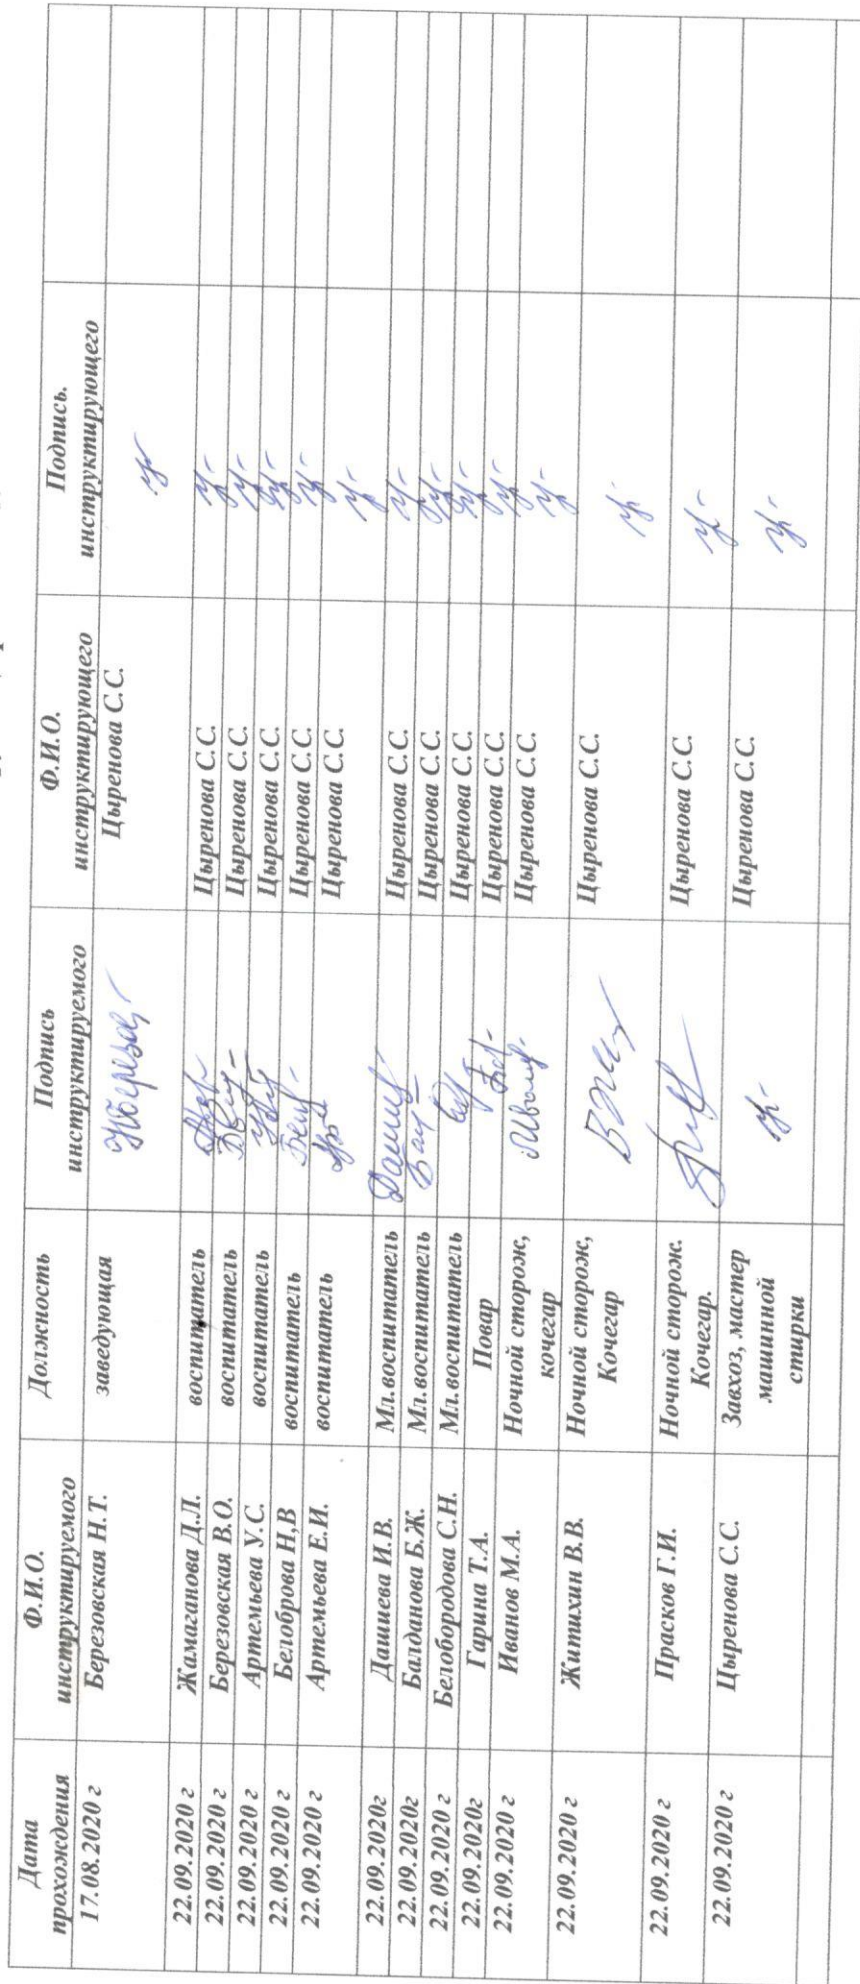 Дата прохождения Ф.И.О. инструктируемого Должность Подпись инструктируемого Ф.И.О. инструктирующего Подпись. инструктирующего
17.08.2020 г Березовская Н.Т. заведующая Цыренова С.С.
22.09.2020 г Жамаганова Д.Л. воспитатель Цыренова С.С.
22.09.2020 г Березовская В.О. воспитатель Цыренова С.С.
22.09.2020 г Артемьева У.С. воспитатель Цыренова С.С.
22.09.2020 г Белоброва Н,В воспитатель Цыренова С.С.
22.09.2020 г Артемьева Е.И. воспитатель Цыренова С.С.
22.09.2020г Дашиева И.В. Мл.воспитатель Цыренова С.С.
22.09.2020г Балданова Б.Ж. Мл.воспитатель Цыренова С.С.
22.09.2020 г Белобородова С.Н. Мл.воспитатель Цыренова С.С.
22.09.2020г Гарина Т.А. Повар Цыренова С.С.
22.09.2020 г Иванов М.А. Ночной сторож, кочегар Цыренова С.С.
22.09.2020 г Жипихин В.В. Ночной сторож, Кочегар Цыренова С.С.
22.09.2020 г Прасков Г.И. Ночной сторож. Кочегар. Цыренова С.С.
22.09.2020 г Цыренова С.С. Завхоз, мастер машинной стирки Цыренова С.С.